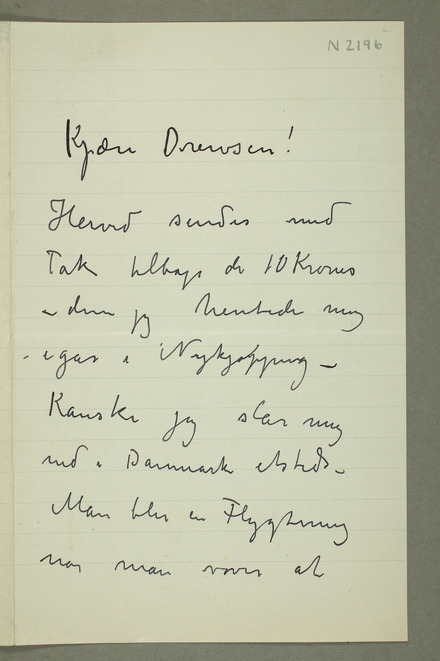 N 2196
Kjære Drewsen!
Herved sendes med
Tak tilbage de 10 Kroner
– dem jeg hentede mig
igaar i Nykjøpping –
Kanske jeg slår mig
ned i Danmark etsteds –
Man blir en Flygtning
når man vover at